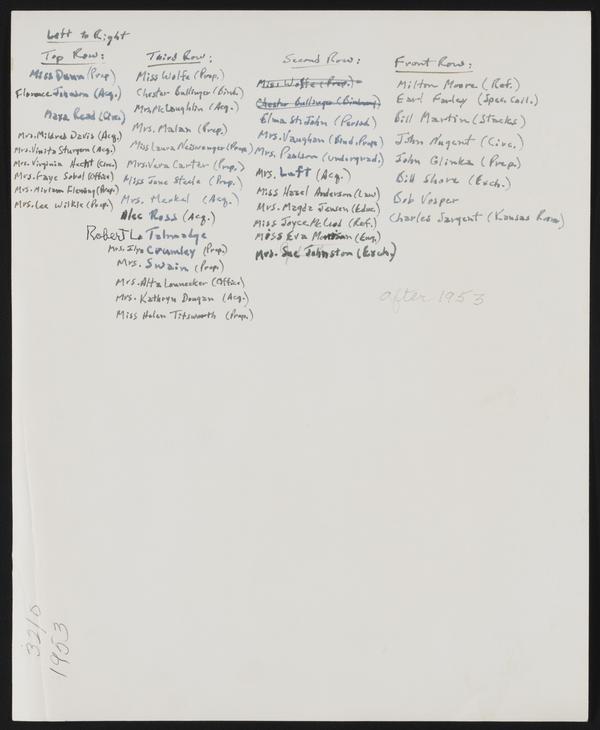 Left to Right
Top Row:
Miss Dunn (Prep)
Florence Johnson (Acq.)
Maya Read (Circ.)
Mrs. Mildred Davis (Acq.)
Mrs. Vinita Sturgeon (Acq.)
Mrs. Virginia Hecht (Circ.)
Mrs. Faye Sobol (Office)
Mrs. Miriam Fleming (Prep)
Mrs. Lee Wilkie (Prep.)
Third Row:
Miss Wolfe (Prep.)
Chester Bullinger (Bind.)
Mrs. McLaughlin (Acq.)
Mrs. Malan (Prep.)
Miss Laura Neiswanger (Prep)
Mrs. Vera Carter (Prep.)
Miss Jane Steele (Prep.)
Mrs. Merkel (Acq.)
Alec Ross (Acq.)
Robert L. Talmadge
Mrs. Ilya Crumley (Prep.)
Mrs. Swain (Prep)
Mrs. Alta (Office)
Mrs. Kathryn Dongan (Acq.)
Miss Helen Titsworth (Prep.)
Second Row:
Miss Wolfe (Prep.)
Chester Bullinger (Bindery)
Elma St. John (Period.)
Mrs. Vaughan (Bind. Prep.)
Mrs. Paulson (Undergrad.)
Mrs. Luft (Acq.)
Miss Hazel Anderson (Law)
Mrs. Magda Jensen (Educ.)
Miss Joyce McLeod (Ref.)
Miss Eva (Eng.)
Mrs. Sue Johnston (Exch.)
Front Row:
Milton Moore (Ref.)
Earl Farley (Spec. Coll.)
Bill Martin (Stacks)
John Nugent (Circ.)
John Glinka (Prep.)
Bill Shore (Exch.)
Bob Vosper
Charles Sargent (Kansas Room)
after 1953
32/0
1953